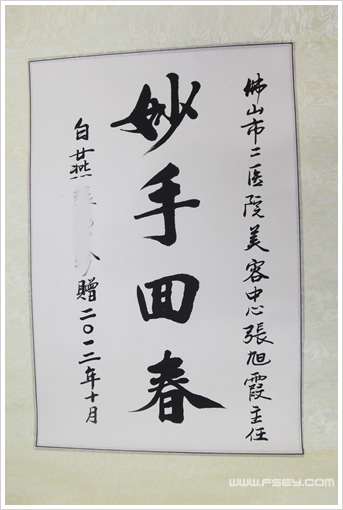 佛山市二医院美容中心張旭霞主任
妙手回春
白燕
贈二〇一二年十月
www.FSEY.COM